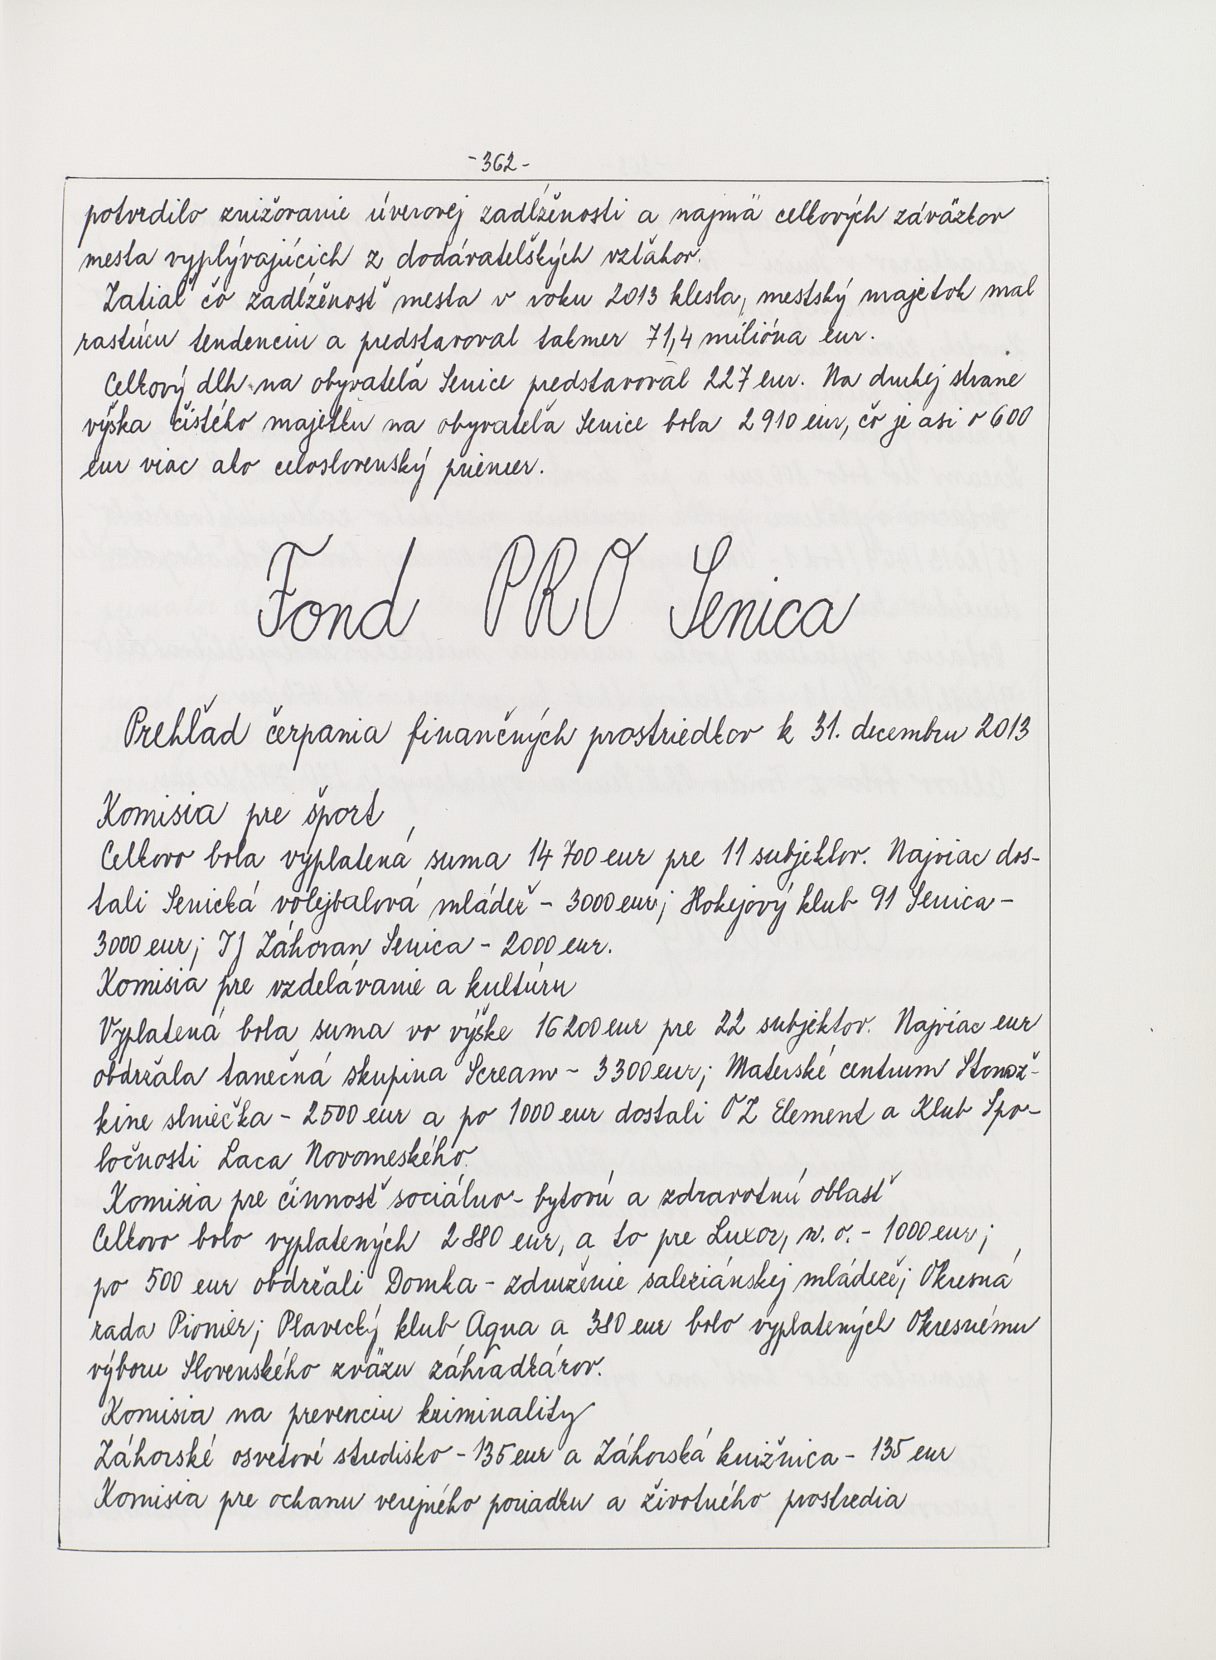 -362-
potvrdilo znižovanie úverovej zadĺženosti a najmä celkových záväzkov
mesta vyplývajúcich z dodávateľských vzťahov.
Zatiaľ čo zadĺženosť mesta v roku 2013 klesla, mestský majetok mal
rastúcu tendenciu a predstavoval takmer 71,4 milióna eur.
Celkový dlh na obyvateľa Senice predstavoval 227 eur. Na druhej strane
výška čistého majetku na obyvateľa Senice bola 2 910 eur, čo je asi o 600
eur viac ako celoslovenský priemer.
Fond PRO Senica
Prehľad čerpania finančných prostriedkov k 31. decembru 2013
Komisia pre šport
Celkovo bola vyplatená suma 14 700 eur pre 11 subjektov. Najviac dos-
tali Senická volejbalová mládež - 3000 eur; Hokejový klub 91 Senica -
3000 eur; TJ Záhoran Senica - 2000 eur.
Komisia pre vzdelávanie a kultúru
Vyplatená bola suma vo výške 16 200 eur pre 22 subjektov. Najviac eur
obdržala tanečná skupina Scream - 3 300 eur; Materské centrum Stonož-
kine slniečka - 2 500 eur a po 1000 eur dostali OZ Element a Klub Spo-
ločnosti Laca Novomeského.
Komisia pre činnosť sociálno-bytovú a zdravotnú oblasť
Celkovo bolo vyplatených 2 880 eur, a to pre Luxor, n. o. - 1000 eur;
po 500 eur obdržali Domka - združenie saleziánskej mládeže; Okresná
rada Pionier; Plavecký klub Aqua a 380 eur bolo vyplatených Okresnému
výboru Slovenského zväzu záhradkárov.
Komisia na prevenciu kriminality
Záhorské osvetové stredisko - 135 eur a Záhorská knižnica - 135 eur
Komisia pre ochanu verejného poriadku a životného prostredia